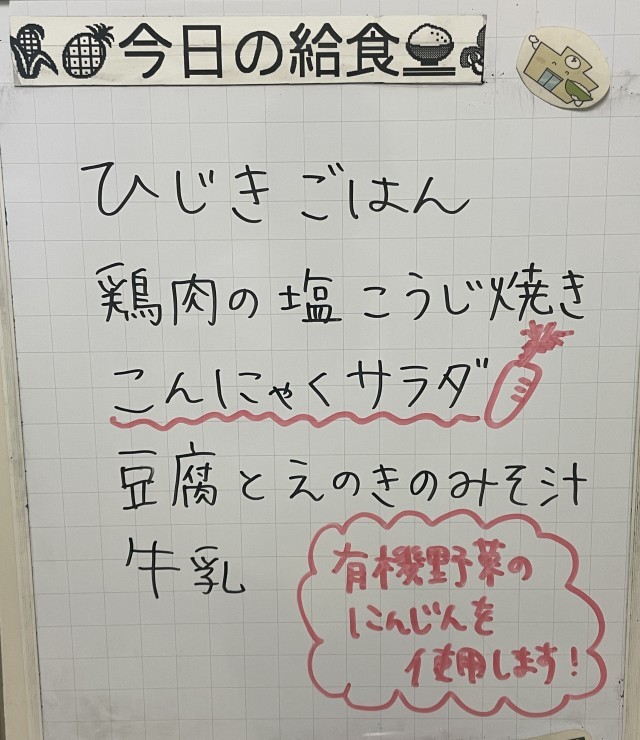 今日の給食
ひじきごはん
鶏肉の塩こうじ焼き
こんにゃくサラダ
豆腐とえのきのみそ汁
牛乳
有機野菜の
にんじんを
使用します!